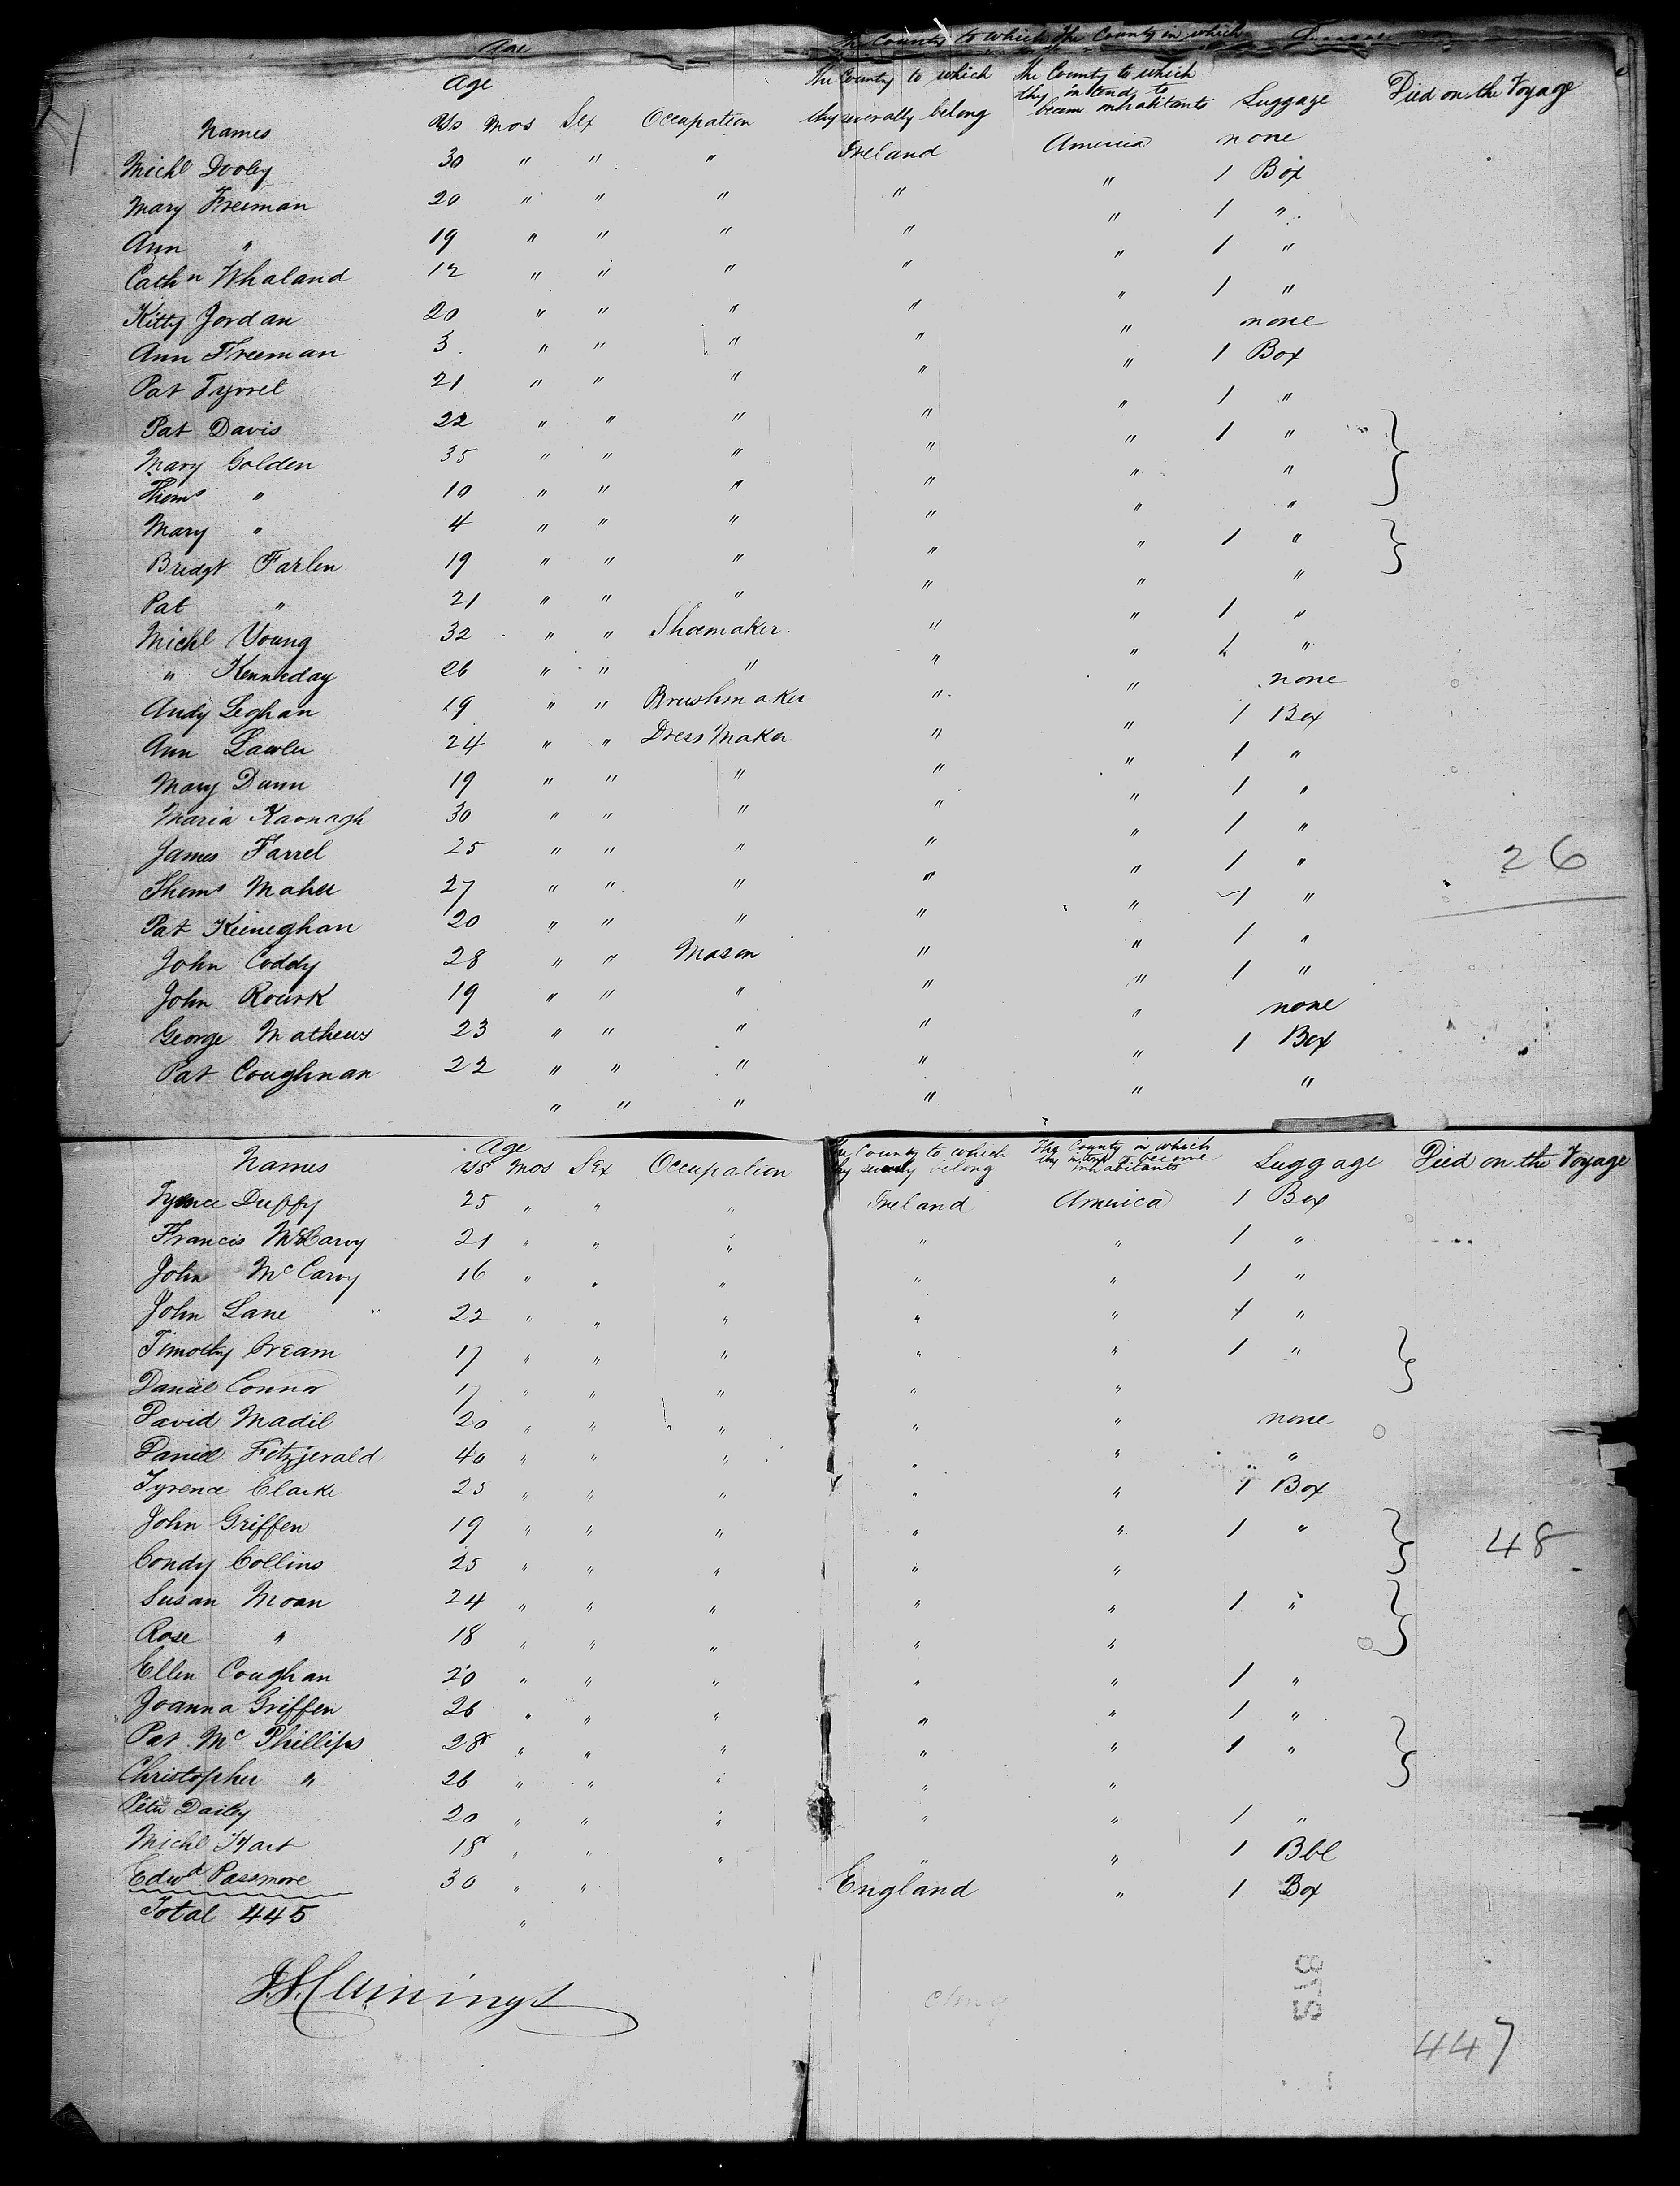 Age
The County to which The County in which
Age
The County to which The County to which
they intend to
Names Yrs Mos Sex Occupation they severally belong become inhabitants Luggage Died on the Voyage
Michl Dooley 30 " " " Ireland America none
Mary Freeman 20 " " " " " 1 Box
Ann " 19 " " " " " 1 "
Cathn Whaland 12 " " " " " 1 "
Kitty Jordan 20 " " " " " 1 "
Ann Freeman 3 " " " " " none
Pat Tyrrel 21 " " " " " 1 Box
Pat Davis 22 " " " " " 1 "
Mary Golden 35 " " " " " 1 "
Thoms " 10 " " " " " "
Mary " 4 " " " " " "
Bridgt Farlen 19 " " " " " 1 "
Pat " 21 " " " " " "
Michl Young 32 " " Shoemaker " " 1 "
" Kenneday 26 " " " " " 1 "
Andy Leghan 19 " " Brushmaker " " none
Ann Lawler 24 " " Dress Maker " " 1 Box
Mary Dunn 19 " " " " " 1 "
Maria Kavnagh 30 " " " " " 1 "
James Farrel 25 " " " " " 1 "
Thoms Maher 27 " " " " " 1 " 26
Pat Keineghan 20 " " " " " 1 "
John Coddy 28 " " Mason " " 1 "
John Rourk 19 " " " " " 1 "
George Mathews 23 " " " " " none
Pat Coughnan 22 " " " " " 1 Box
" " " " " "
Age
Names Yrs Mos Sex Occupation The County to which they severally belong The County in which they intend to become inhabitants Luggage Died on the Voyage
Tyrence Duffy 25 " " " Ireland America 1 Box
Francis McCarvy 21 " " " " " 1 "
John McCarvy 16 " " " " " 1 "
John Lane 22 " " " " " 1 "
Timothy Cream 17 " " " " " 1 "
Daniel Connor 17 " " " " "
David Madil 20 " " " " " none
Daniel Fitzjerald 40 " " " " " "
Tyrence Clarke 25 " " " " " 1 Box
John Griffen 19 " " " " " 1 "
Condy Collins 25 " " " " " 48
Susan Moan 24 " " " " " 1 "
Rose " 18 " " " " "
Ellen Coughan 20 " " " " " 1 "
Joanna Griffen 26 " " " " " 1 "
Pat McPhillips 28 " " " " " 1 "
Christopher " 26 " " " " "
Peter Dailey 20 " " " " " 1 "
Michl Hart 18 " " " " " 1 Bbl
Edwd Passmore 30 " " England " 1 Box
Total 445 "
J.S. Cumings
8115
447